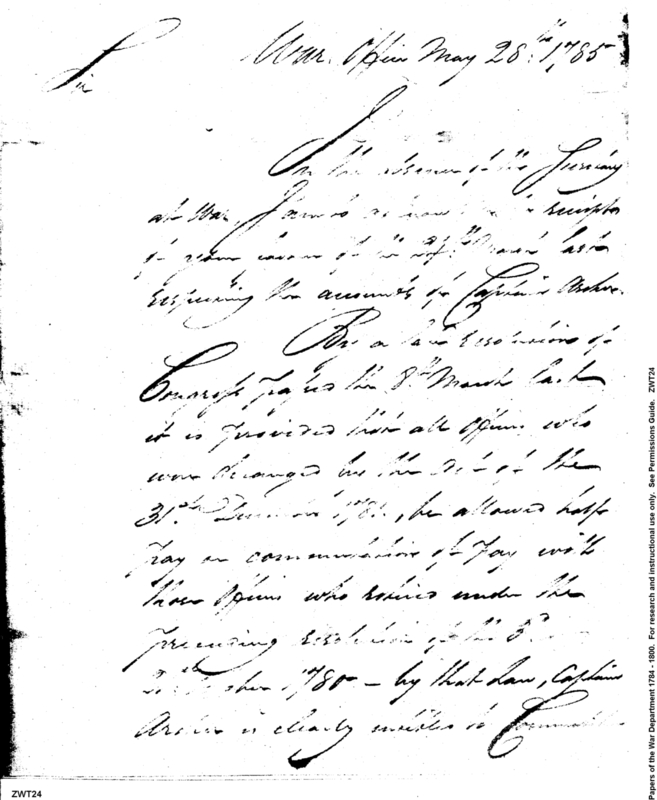 War Office May 28th 1785
Sir
In the absence of the Secretary
at War, I acknowledge receipt
of your favor of the March last
respecting the accounts of Captain Archer.
By a late resolution of
Congress passed the 8th March last
it is provided that all officers who
were deranged by the of the
31st December 1781, be allowed half
pay or commutation of pay with
those Officers who retired under the
preceding resolution of the 3d
1780 – by that Law, Captain
Archer is clearly entitled to
ZWT24
Papers of the War Department 1784 - 1800. For research and instructional use only. See Permissions Guide. ZWT24